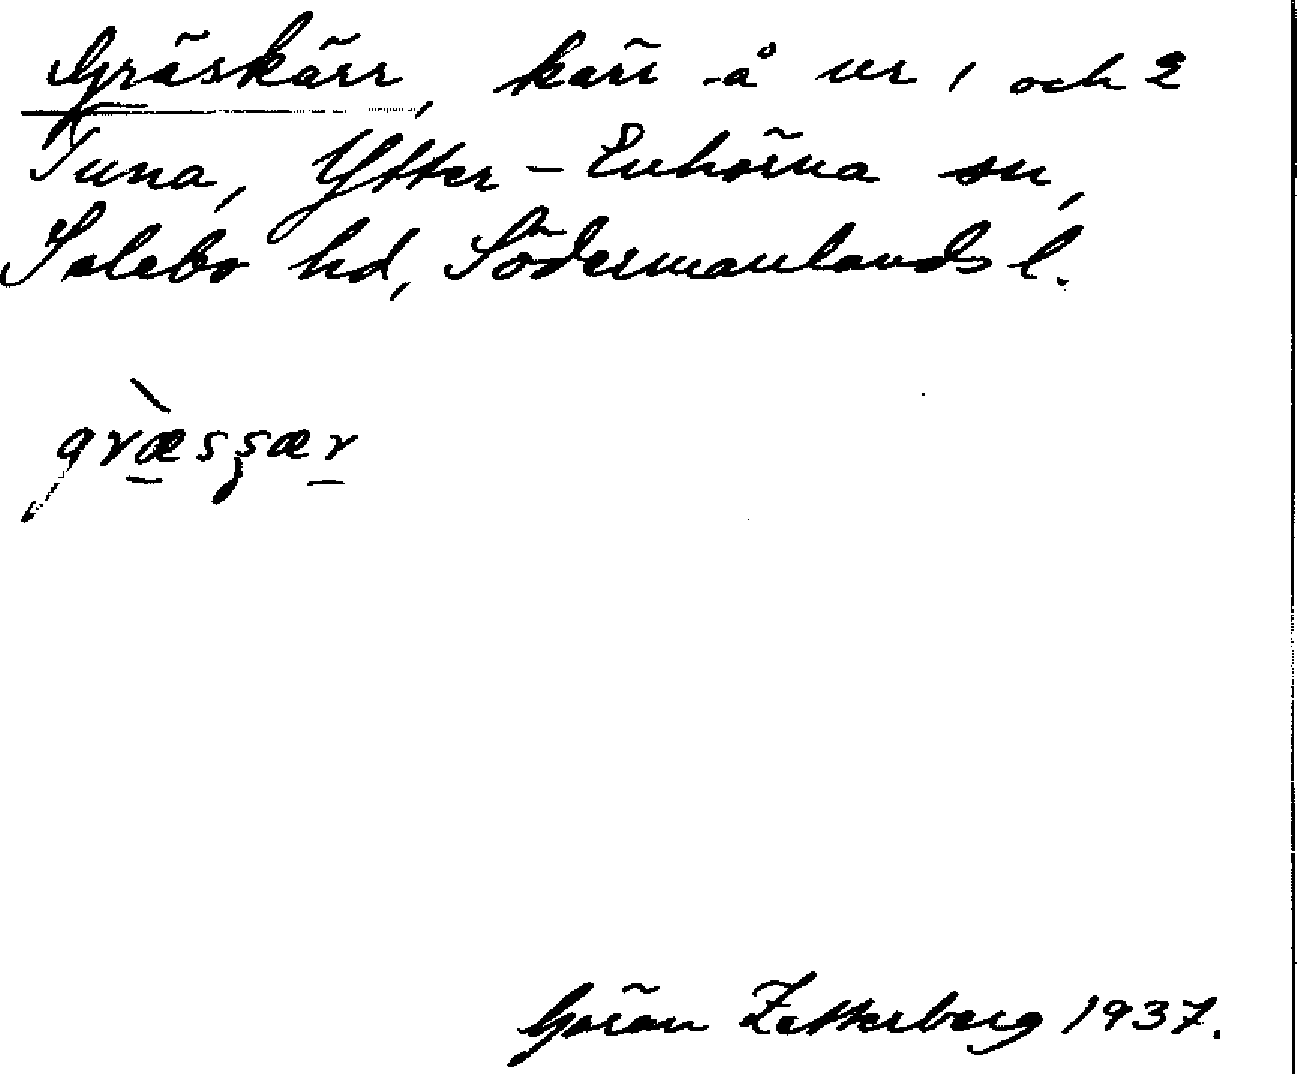 Gräskärr, kärr å nr 1 och 2
Tuna, Ytter-Enhörna sn,
Selebo hd, Södermanlands l.
græ̀sʂær
Göran Zetterberg 1937.